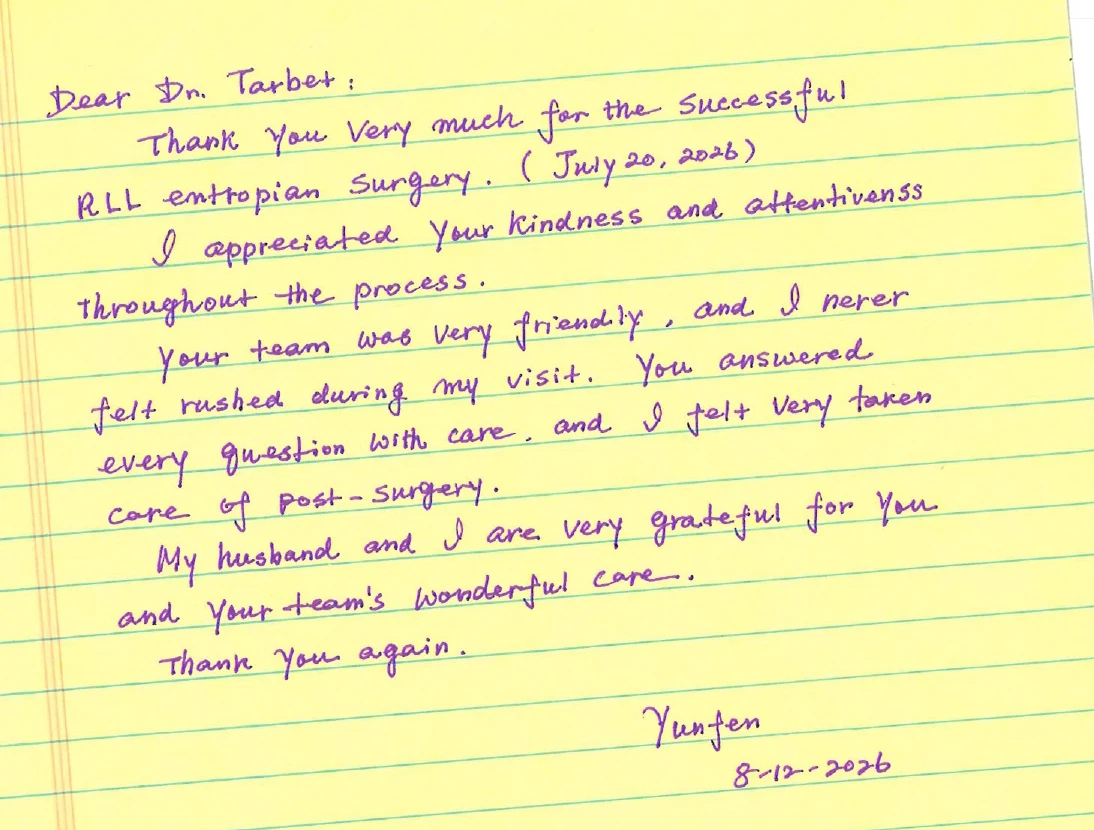 Dear Dr. Tarbet:
Thank You Very much for the successful
RLL entropian surgery. (July 20, 2026)
I appreciated Your kindness and attentivenss
throughout the process.
Your team was very friendly, and I never
felt rushed during my visit. You answered
every question with care, and I felt very taken
care of post-surgery.
My husband and I are very grateful for You
and Your team's wonderful care.
Thank You again.
Yunfen
8-12-2026